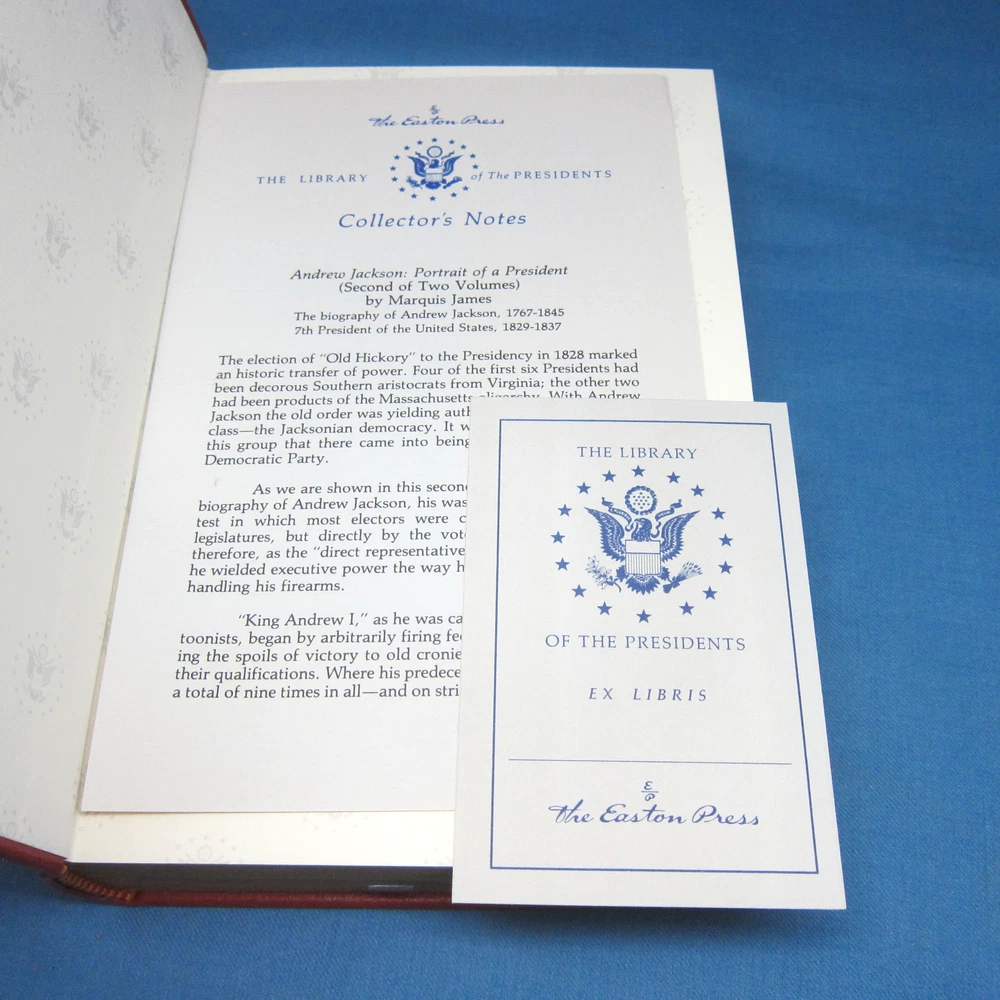 The Easton Press
THE LIBRARY of The PRESIDENTS
Collector's Notes
Andrew Jackson: Portrait of a President
(Second of Two Volumes)
by Marquis James
The biography of Andrew Jackson, 1767-1845
7th President of the United States, 1829-1837
The election of "Old Hickory" to the Presidency in 1828 marked
an historic transfer of power. Four of the first six Presidents had
been decorous Southern aristocrats from Virginia; the other two
had been products of the Massachusetts oligarchy. With Andrew
Jackson the old order was yielding auth
class—the Jacksonian democracy. It w
this group that there came into being
Democratic Party.
As we are shown in this secon
biography of Andrew Jackson, his was
test in which most electors were c
legislatures, but directly by the vot
therefore, as the "direct representative
he wielded executive power the way h
handling his firearms.
"King Andrew I," as he was ca
toonists, began by arbitrarily firing fe
ing the spoils of victory to old cronie
their qualifications. Where his predece
a total of nine times in all—and on stri
THE LIBRARY
OF THE PRESIDENTS
EX LIBRIS
E
P
The Easton Press